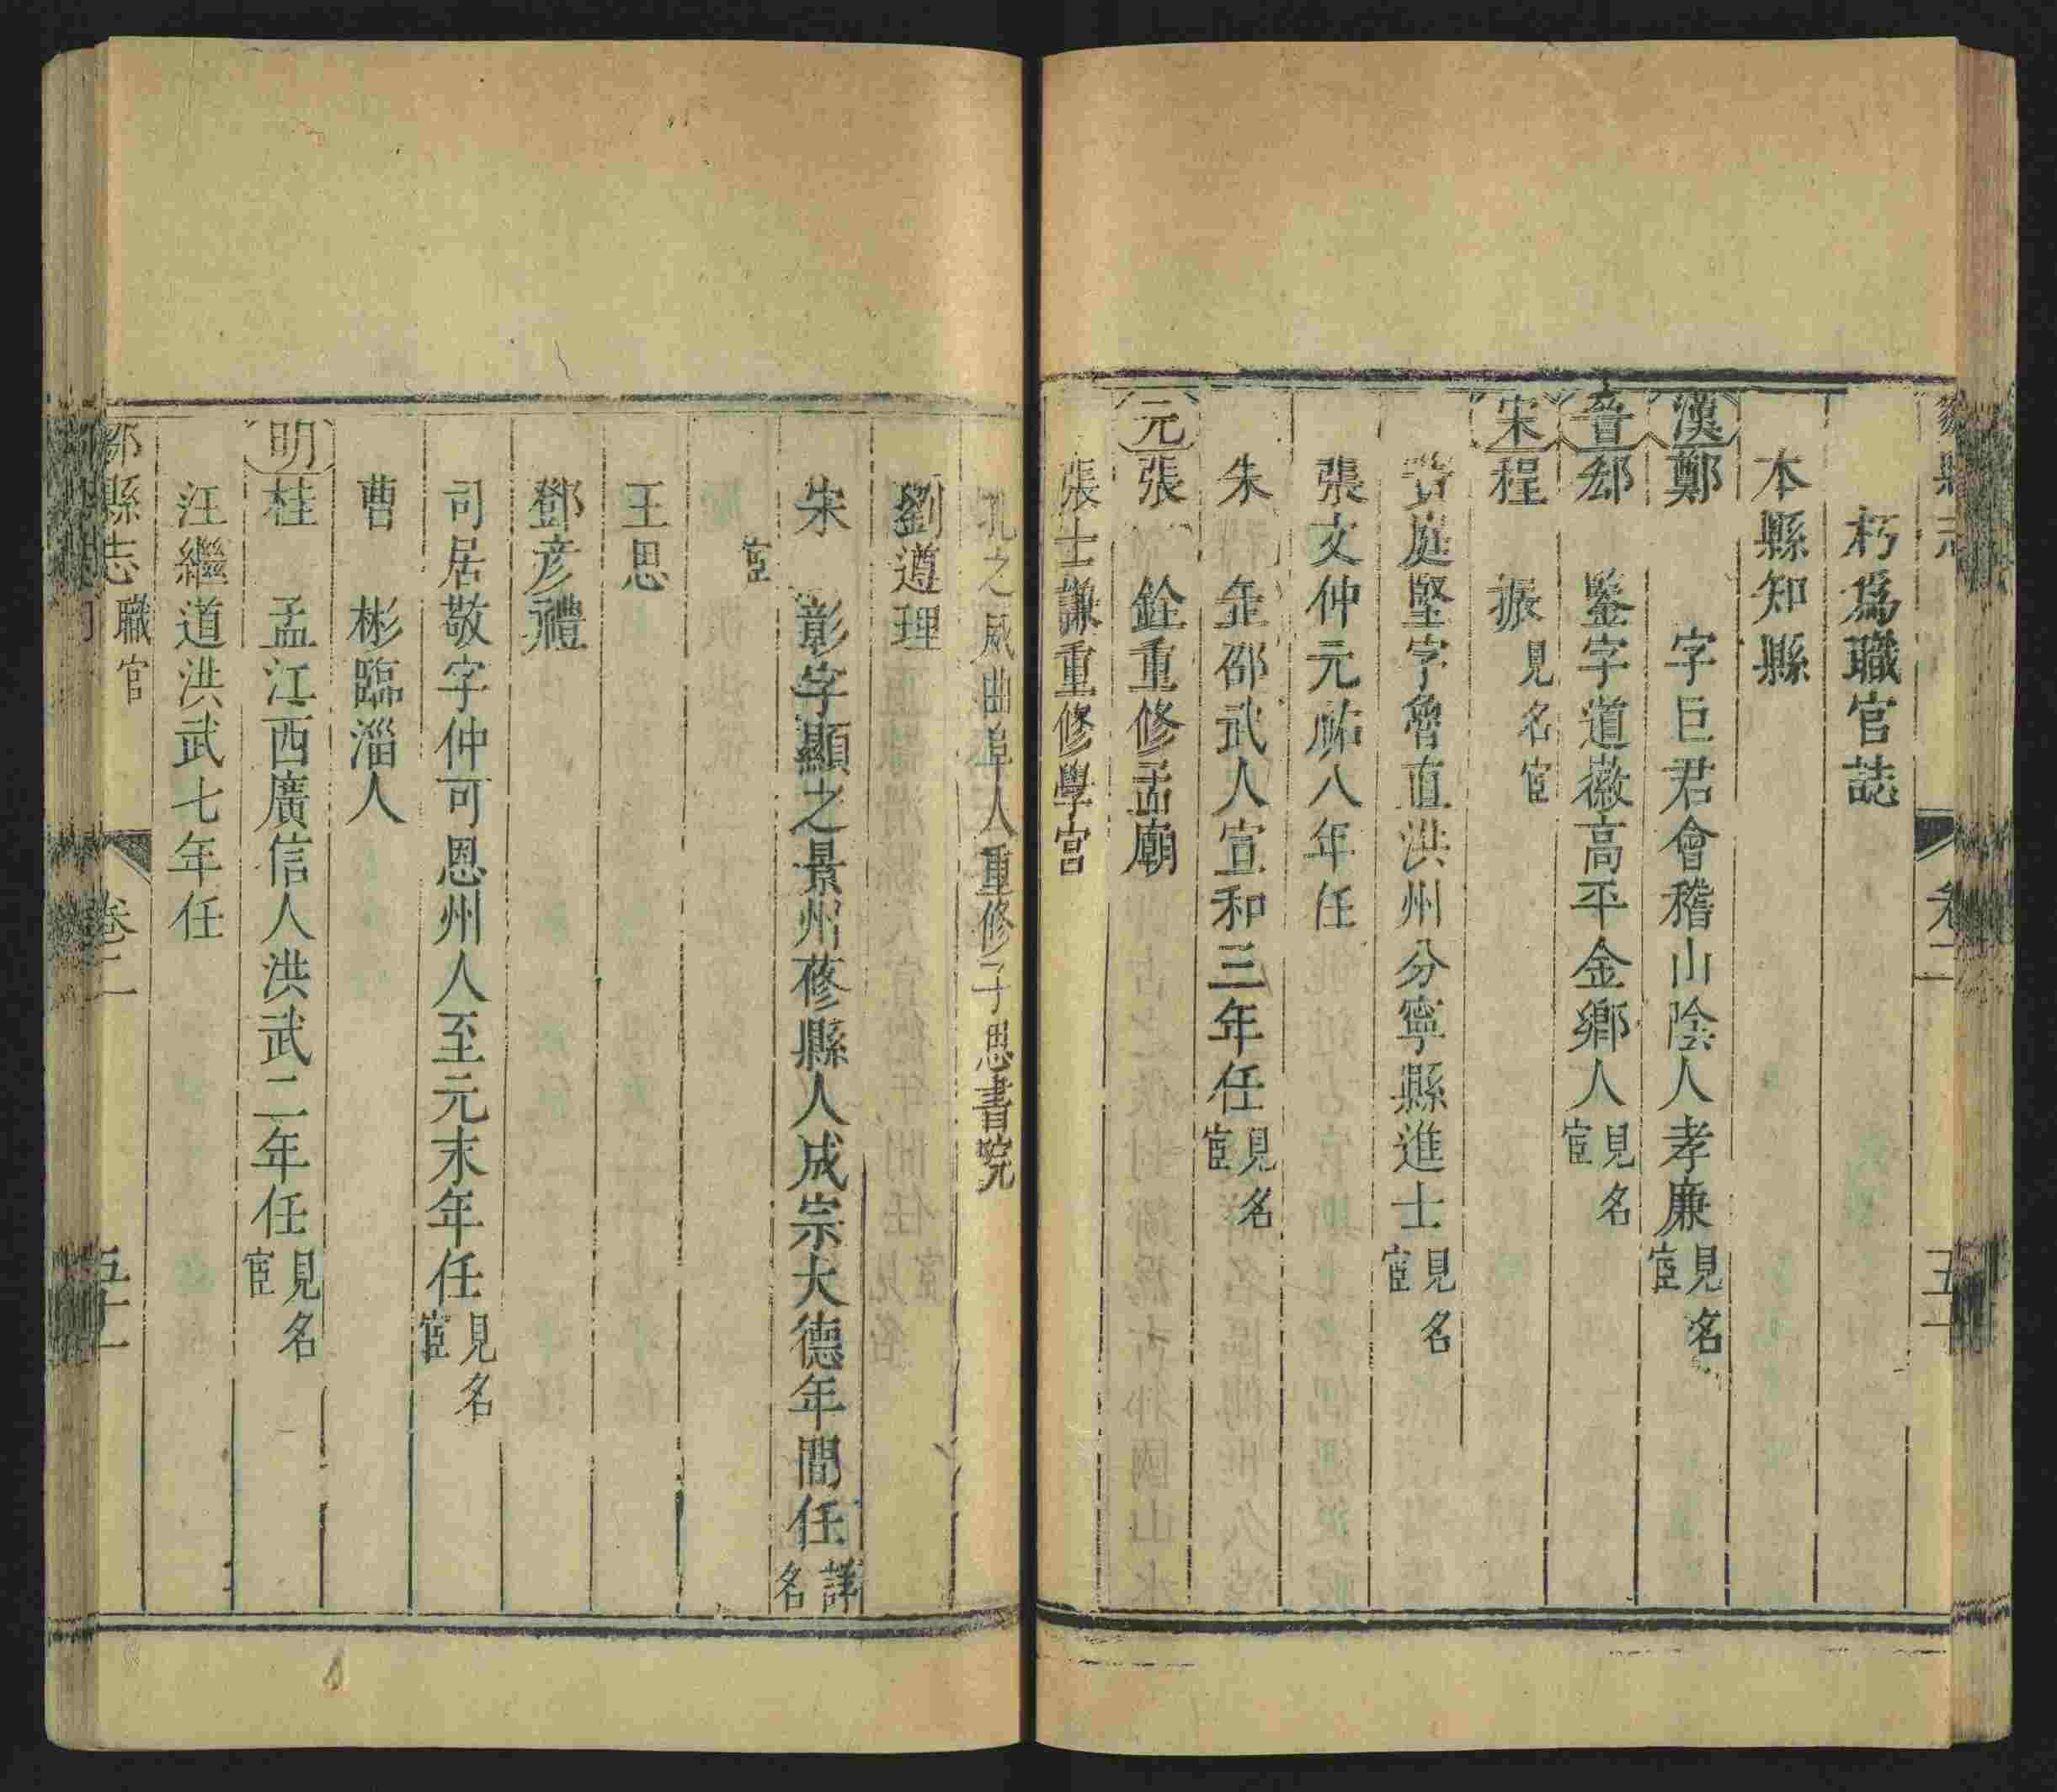 鄒縣志
卷二
五十
朽爲職官誌
本縣知縣
漢 鄭 字巨君會稽山陰人孝廉見名宦
晉 郄鑒字道徽高平金鄉人見名宦
宋 程振見名宦
黃庭堅字魯直洪州分寧縣進士見名宦
張文仲元祐八年任
朱缶邵武人宣和三年任見名宦
元 張銓重修孟廟
張士謙重修學宮
孔之威曲阜人重修子思書院
劉遵理
朱彰字顯之景州蓚縣人成宗大德年間任詳名
宦
王思
鄧彦禮
司居敬字仲可恩州人至元末年任見名宦
曹彬臨淄人
明 桂孟江西廣信人洪武二年任見名宦
汪繼道洪武七年任
鄒縣志 職官
卷二
五十一